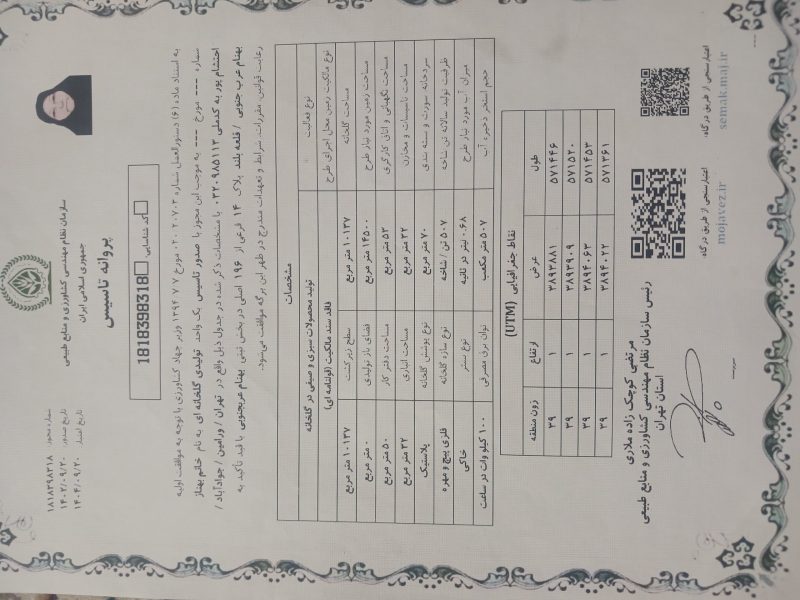 جمهوری اسلامی ایران
سازمان نظام مهندسی کشاورزی و منابع طبیعی
پروانه تاسیس
شماره مجوز: ۱۸۱۸۳۹۸۳۱۸
تاریخ صدور: ۱۴۰۲/۰۹/۲۰
تاریخ اعتبار: ۱۴۰۴/۰۹/۲۰
کد شناسایی: 1818398318
به استناد ماده (۶) دستورالعمل شماره ۰۲۰/۲۰۷۰۲ مورخ ۱۳۹۴/۷/۷ وزیر جهاد کشاورزی با توجه به موافقت اولیه
شماره --- مورخ --- به موجب این مجوز با صدور تاسیس یک واحد تولیدی گلخانه ای به نام خانم بهناز
احتشام پور به کدملی ۰۳۲۰۹۸۵۱۱۳ با مشخصات ذکر شده در جدول ذیل واقع در تهران / ورامین / جوادآباد /
بهنام عرب جنوبی / قلعه بلند پلاک ۱۴ فرعی از ۱۹۶ اصلی در بخش ثبتی بهنام عربجنوبی با قید تأکید به
رعایت قوانین، مقررات، شرایط و تعهدات مندرج در ظهر این برگه موافقت می‌شود.
مشخصات
نوع فعالیت تولید محصولات سبزی و صیفی در گلخانه
نوع مالکیت زمین محل اجرای طرح فاقد سند مالکیت (قولنامه ای)
مساحت گلخانه ۱۰۱۳۷ متر مربع سطح زیر کشت ۱۰۱۳۷ متر مربع
مساحت زمین مورد نیاز طرح ۱۴۵۰۰ متر مربع فضای باز تولیدی ۰ متر مربع
مساحت نگهبانی و اتاق کارگری ۵۳ متر مربع مساحت دفتر کار ۵۰ متر مربع
مساحت تاسیسات و مخازن ۲۲ متر مربع مساحت انباری ۲۲ متر مربع
سردخانه سورت و بسته بندی ۷۰ متر مربع نوع پوشش گلخانه پلاستیک
ظرفیت تولید سالانه تن شاخه ۵۰۷ تن / شاخه نوع سازه گلخانه فلزی پیچ و مهره
میزان آب مورد نیاز طرح ۰.۶۸ لیتر در ثانیه نوع بستر خاکی
حجم استخر ذخیره آب ۵۰۷ متر مکعب توان برق مصرفی ۱۰۰ کیلو وات در ساعت
نقاط جغرافیایی (UTM)
طول عرض ارتفاع زون منطقه
۵۷۱۴۴۶ ۳۸۹۳۸۸۱ ۱ ۳۹
۵۷۱۵۲۰ ۳۸۹۳۹۰۹ ۱ ۳۹
۵۷۱۴۵۳ ۳۸۹۴۰۶۳ ۱ ۳۹
۵۷۱۳۶۱ ۳۸۹۴۰۲۲ ۱ ۳۹
مرتضی کوچک زاده ملاری
رئیس سازمان نظام مهندسی کشاورزی و منابع طبیعی
استان تهران
اعتبارسنجی از طریق درگاه:
mojavez.ir
اعتبارسنجی از طریق درگاه:
semak.maj.ir